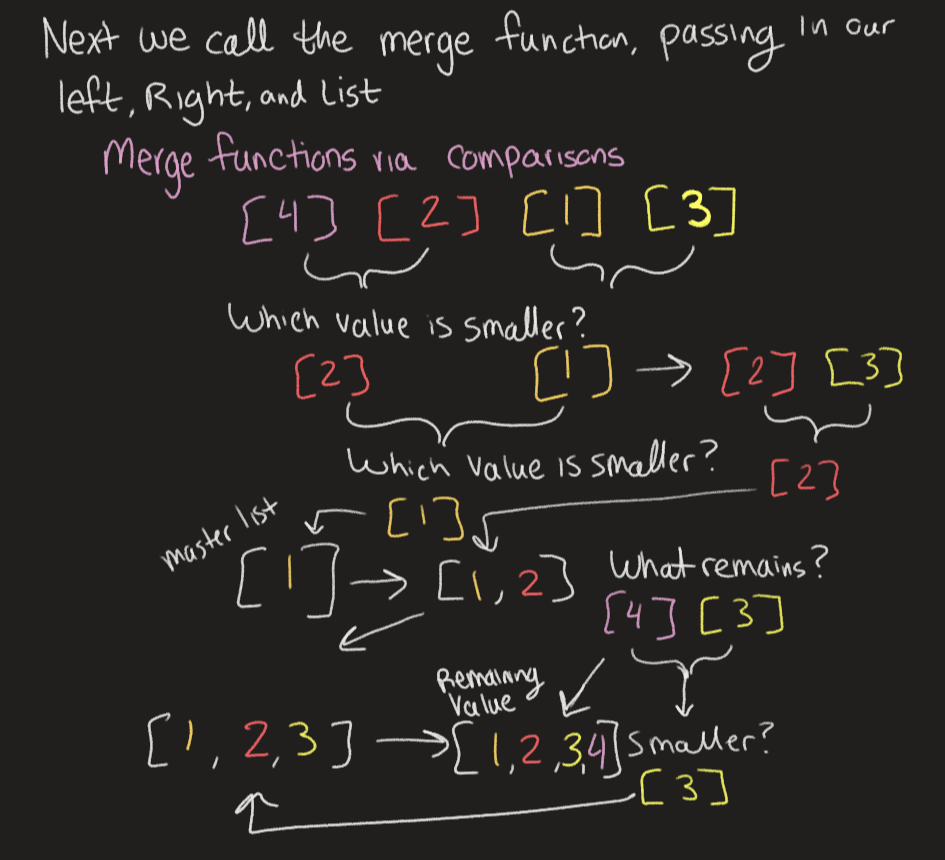 Next we call the merge function, passing in our
left, Right, and List
Merge functions via comparisons
[4] [2] [1] [3]
Which value is smaller?
[2] [1] → [2] [3]
Which value is smaller?
[2]
master list
[1]
[1] → [1, 2]
What remains?
[4] [3]
Remaining
Value
[1, 2, 3] → [1, 2, 3, 4]
Smaller?
[3]